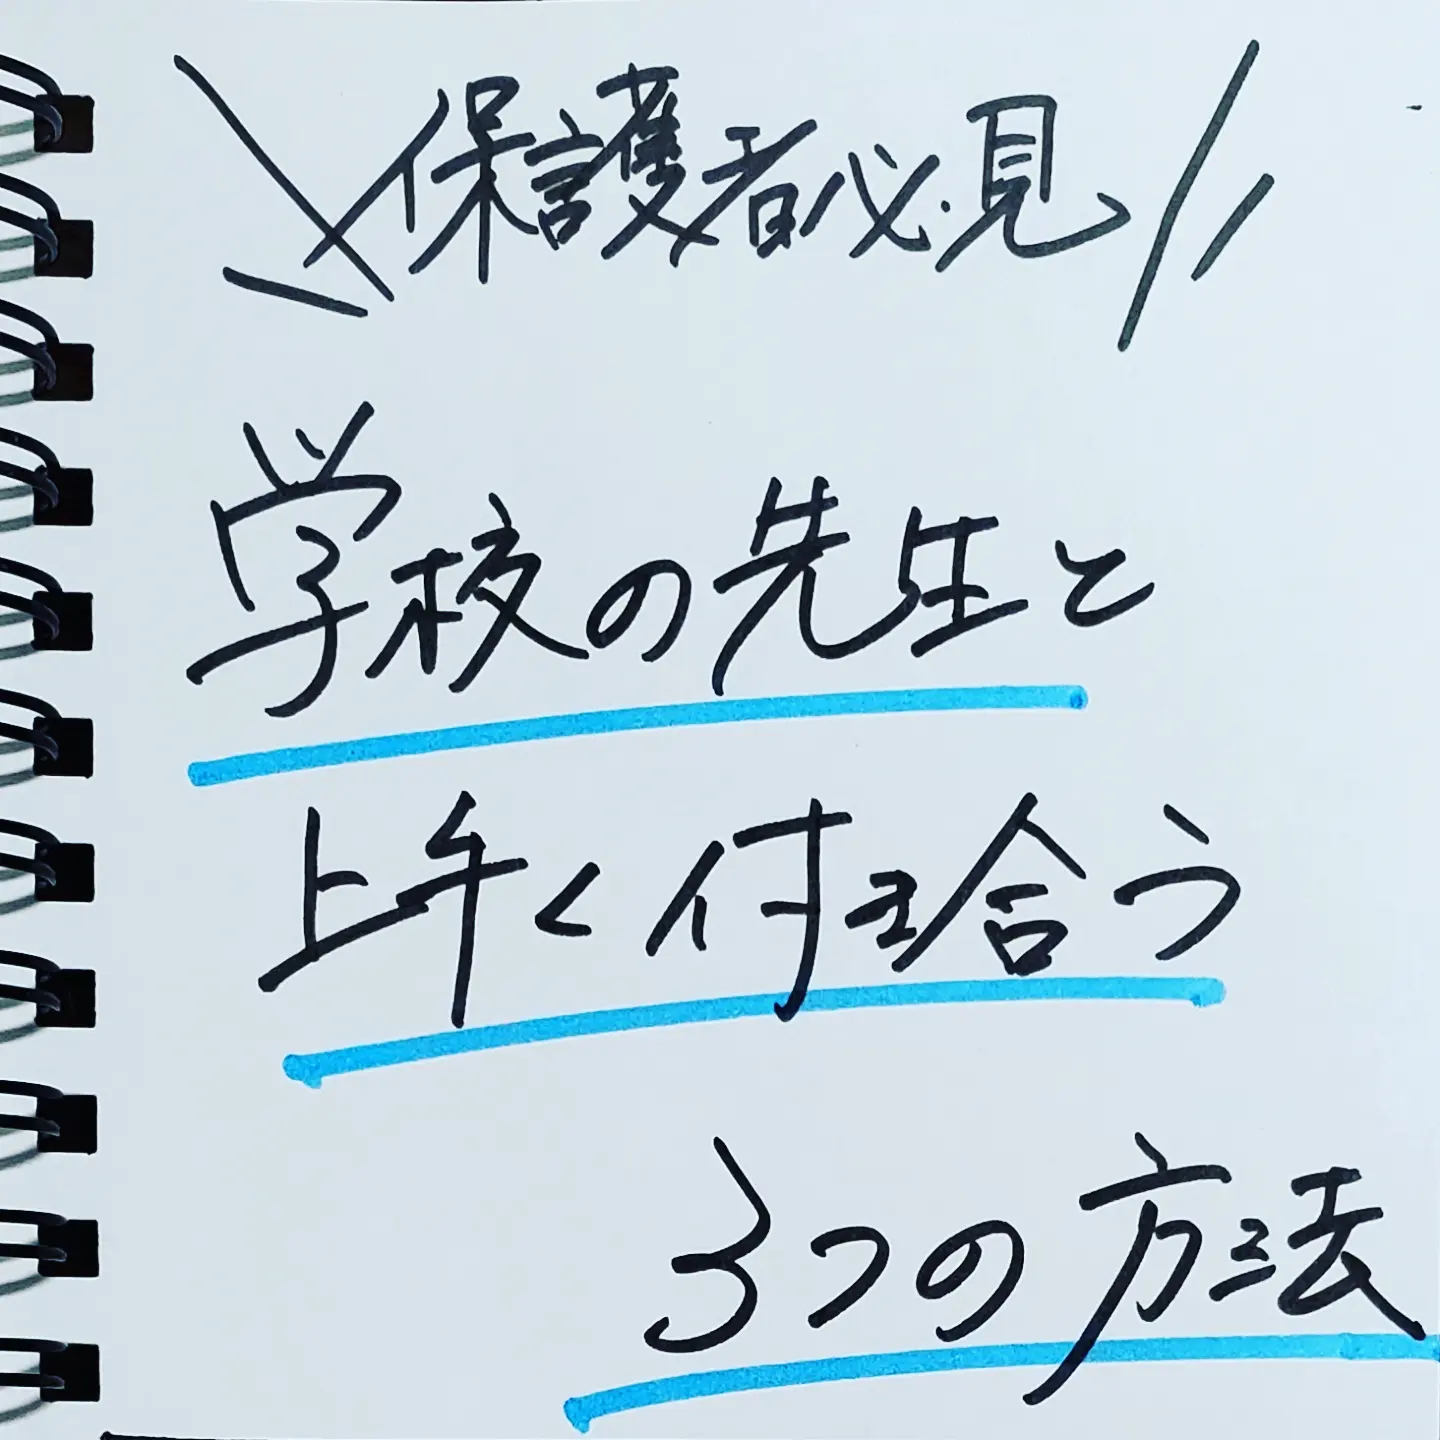 保護者必見
学校の先生と
上手く付き合う
3つの方法